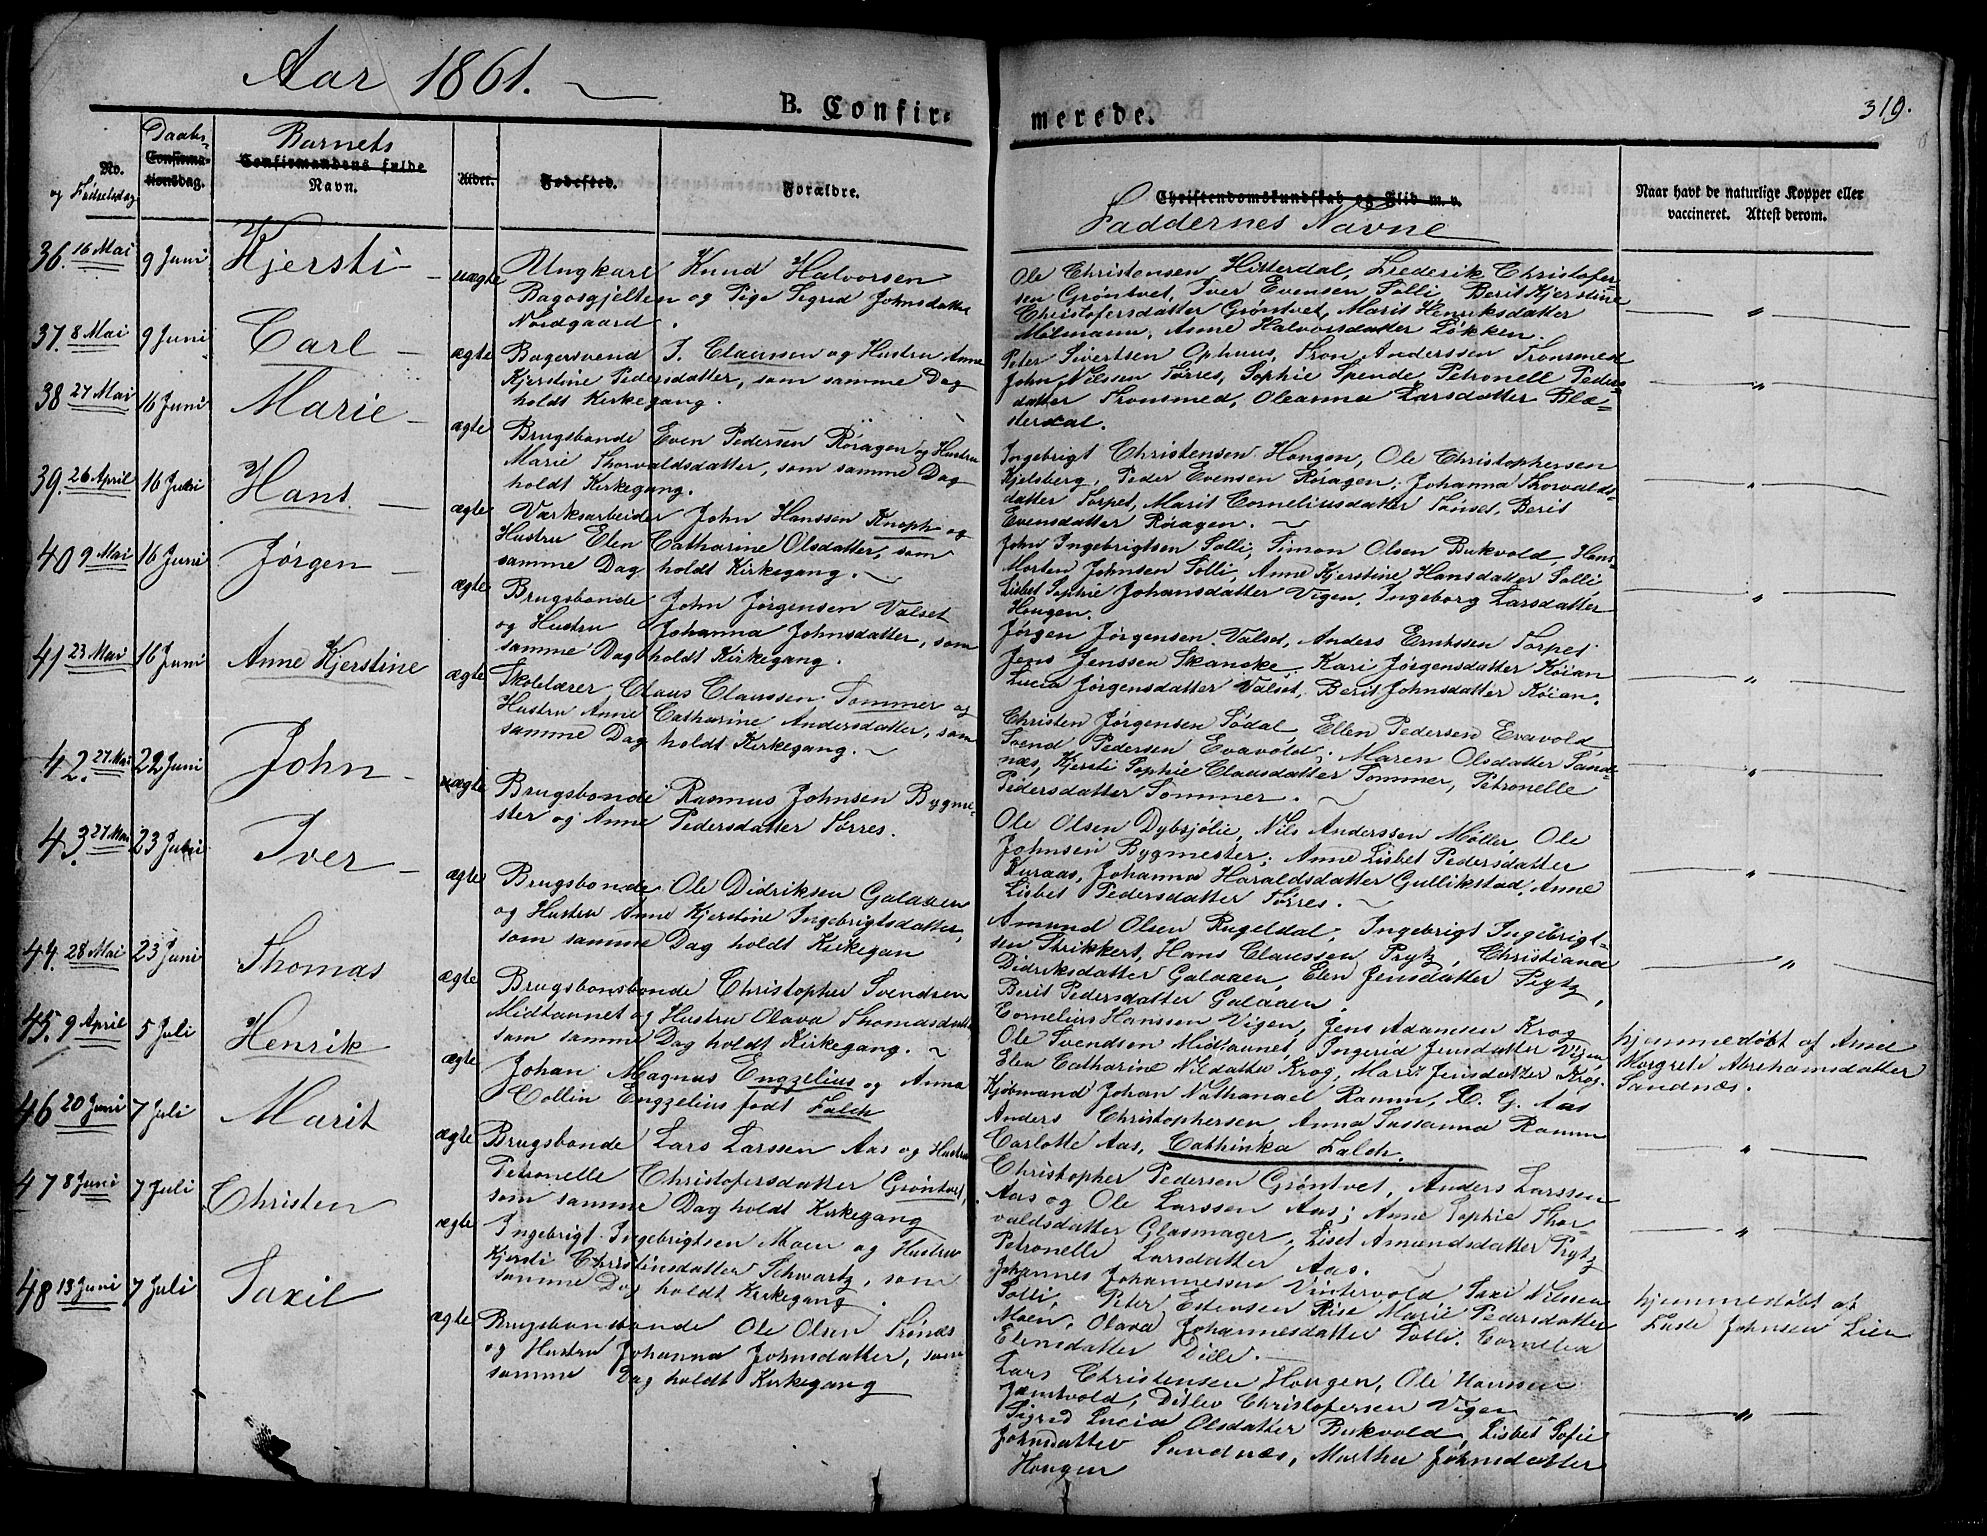 Aar 1861.
B. Confirmerede.
319.
No. og Fødselsdag
Daabs-
Confirmationsdag.
Barnets
Confirmandens fulde Navn.
Alder.
Fødested.
Forældre.
Christendomskundskab og Flid m. v.
Faddernes Navne
Naar havt de naturlige Kopper eller
vaccineret. Attest derom.
36. 16 Mai 9 Juni Kjersti uægte
Ungkarl Knud Halvorsen
Bagosgjelten og Pige Sigrid Johnsdatter
Nordgaard.
Ole Christensen Hitterdal, Frederik Christofer-
sen Grøntvet, Iver Evensen Solli, Berit Kjerstine
Christofersdatter Grøntvet, Marit Henriksdatter
Milmann, Anne Halvorsdatter Løkken.
37. 8 Mai 9 Juni Carl ægte
Bagersvend J. Claussen og Hustru Anne
Kjerstine Pedersdatter, som samme Dag
holdt Kirkegang.
Peter Sivertsen Ophuus, Tron Anderssen Tronsmed
John Nilssen Tørres, Sophie Spende, Petronell Peders-
datter Tronsmed, Oleanna Larsdatter Blæ-
sterdal.
38 27 Mai 16 Juni Marie ægte
Brugsbonde Even Pedersen Røragen og Hustru
Marie Thorvaldsdatter, som samme Dag
holdt Kirkegang.
Ingebrigt Christensen Hougen, Ole Christophersen
Kjelsberg, Peder Evensen Røragen, Johanna Thorvalds-
datter Torpet, Marit Corneliusdatter Tønset, Berit
Evensdatter Røragen.
39. 26 April 16 Juni Hans ægte
Værksarbeider John Hanssen Knoph og
Hustru Elen Catharine Olsdatter, som
samme Dag holdt Kirkegang.
John Ingebrigtsen Solli, Simon Olsen Bukvold, Hans
Morten Johnsen Solli, Anne Kjerstine Hansdatter Solli,
Lisbet Sophie Johansdatter Vigen, Ingeborg Larsdatter
Hougen.
40 9 Mai 16 Juni Jørgen ægte
Brugsbonde John Jørgensen Valset
og Hustru Johanna Johnsdatter, som
samme Dag holdt Kirkegang.
Jørgen Jørgensen Valset, Anders Erntssen Torpet
Jens Jenssen Skancke, Kari Jørgensdatter Køian,
Lucia Jørgensdatter Valset, Berit Johnsdatter Køian.
41 23 Mai 16 Juni Anne Kjerstine ægte
Skolelærer Claus Claussen Sommer og
Hustru Anne Catharine Andersdatter, som
samme Dag holdt Kirkegang.
Christen Jørgensen Sødal, Ellen Pedersen Evavold,
Svend Pedersen Evavold; Maren Olsdatter Sand-
næs, Kjersti Sophie Clausdatter Sommer, Petronelle
Pedersdatter Sommer.
42. 27 Mai 22 Juni John ægte
Brugsbonde Rasmus Johnsen Bygme-
ster og Anne Pedersdatter Tørres.
Ole Olsen Dybsjølie, Nils Anderssen Møller, Ole
Johnsen Bygmester; Anne Lisbet Pedersdatter
Kuraas, Johanna Haraldsdatter Gullikstad, Anne
Lisbet Pedersdatter Tørres.
43. 27 Mai 23 Juni Iver ægte
Brugsbonde Ole Didriksen Galaaen
og Hustru Anne Kjerstine Ingebrigtsdatter,
som samme Dag holdt Kirkegan
Amund Olsen Rugeldal, Ingebrigt Ingebrigt-
sen Strikkert, Hans Claussen Prytz, Christiana
Didriksdatter Galaaen, Elen Jensdatter Prytz,
Berit Pedersdatter Galaaen.
44. 28 Mai 23 Juni Thomas ægte
Brugsbonsbonde Christopher Svendsen
Midtaunet og Hustru Olava Thomasdatter
som samme Dag holdt Kirkegang.
Cornelius Hanssen Vigen, Jens Adamsen Krog
Ole Svendsen Midtaunet, Ingerid Jensdatter Vigen,
Elen Catharine Nilsdatter Krog, Marit Jensdatter Krog.
45. 9 April 5 Juli Henrik ægte
Johan Magnus Engzelius og Anna
Collin Engzelius født Falch
Kjøbmand Johan Nathanael Ramm, C. G. Aas
Anders Christophersen, Anna Sussanna Ramm
Carlotte Aas, Cathinka Falch.
hjemmedøbt af Anne
Margrete Abrahamsdatter
Sandnæs.
46 20 Juni 7 Juli Marit ægte
Brugsbonde Lars Larssen Aas og Hustru
Petronelle Christofersdatter Grøntvet,
som samme Dag holdt Kirkegang
Christopher Pedersen Grøntvet, Anders Larssen
Aas og Ole Larssen Aas; Anne Sophie Thor-
valdsdatter Glasmager, Liset Amundsdatter Prytz
Petronelle Larsdatter Aas.
47 8 Juni 7 Juli Christen ægte
Ingebrigt Ingebrigtsen Moen og Hustru
Kjersti Christensdatter Schwartz, som
samme Dag holdt Kirkegang.
Johannes Johannessen Vintervold Taxe Nilsen
Solli, Peter Estensen Rise Marie Pedersdatter
Moen, Olava Johannesdatter Solli, Cornelia
Elensdatter Dille.
hjemmedøbt af
Johnsen Lien
48 13 Juni 7 Juli Taxil ægte
Brugsbonsbonde Ole Olsen Trønæs
og Hustru Johanna Johnsdatter, som
samme Dag holdt Kirkegang
Lars Christensen Hougen, Ole Hanssen
Jamtvold, Ditlev Christofersen Vigen
Sigrid Lucia Olsdatter Bukvold, Lisbet Sofie
Johnsdatter Sandnæs, Marthe Johnsdatter
Hougen